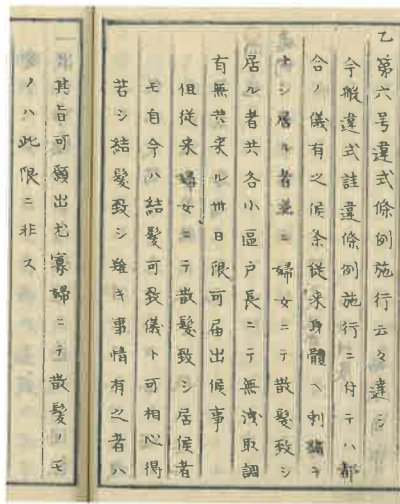 乙第六号違式條例施行云々達シ
今般違式詿違條例施行ニ付テハ都
合ノ儀有之候条従来身體ヘ刺繍
ナシ居ル者並ニ婦女ニテ散髪致シ
居ル者共各小區戸長ニテ無洩取調
有無共来ル廿日限可届出候事
但従来婦女ニテ散髪致シ居候者
モ自今ハ結髪可致儀ト可相心得
若シ結髪致シ難キ事情有之者ハ
其旨可願出尤寡婦ニテ散髪ノモ
ノハ此限ニ非ス